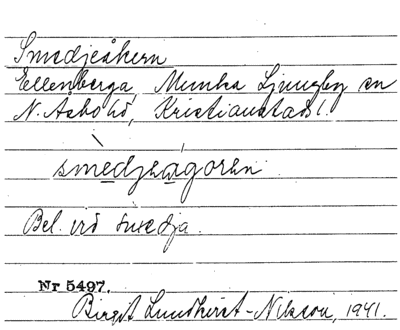 Smedjeåkern
Ellenberga, Munka Ljungby sn
N. Åsbo hd, Kristianstads l.
smedjeågoren
Bel. vid smedja.
Nr 5497.
Birgit Lundkvist-Nilsson, 1941.